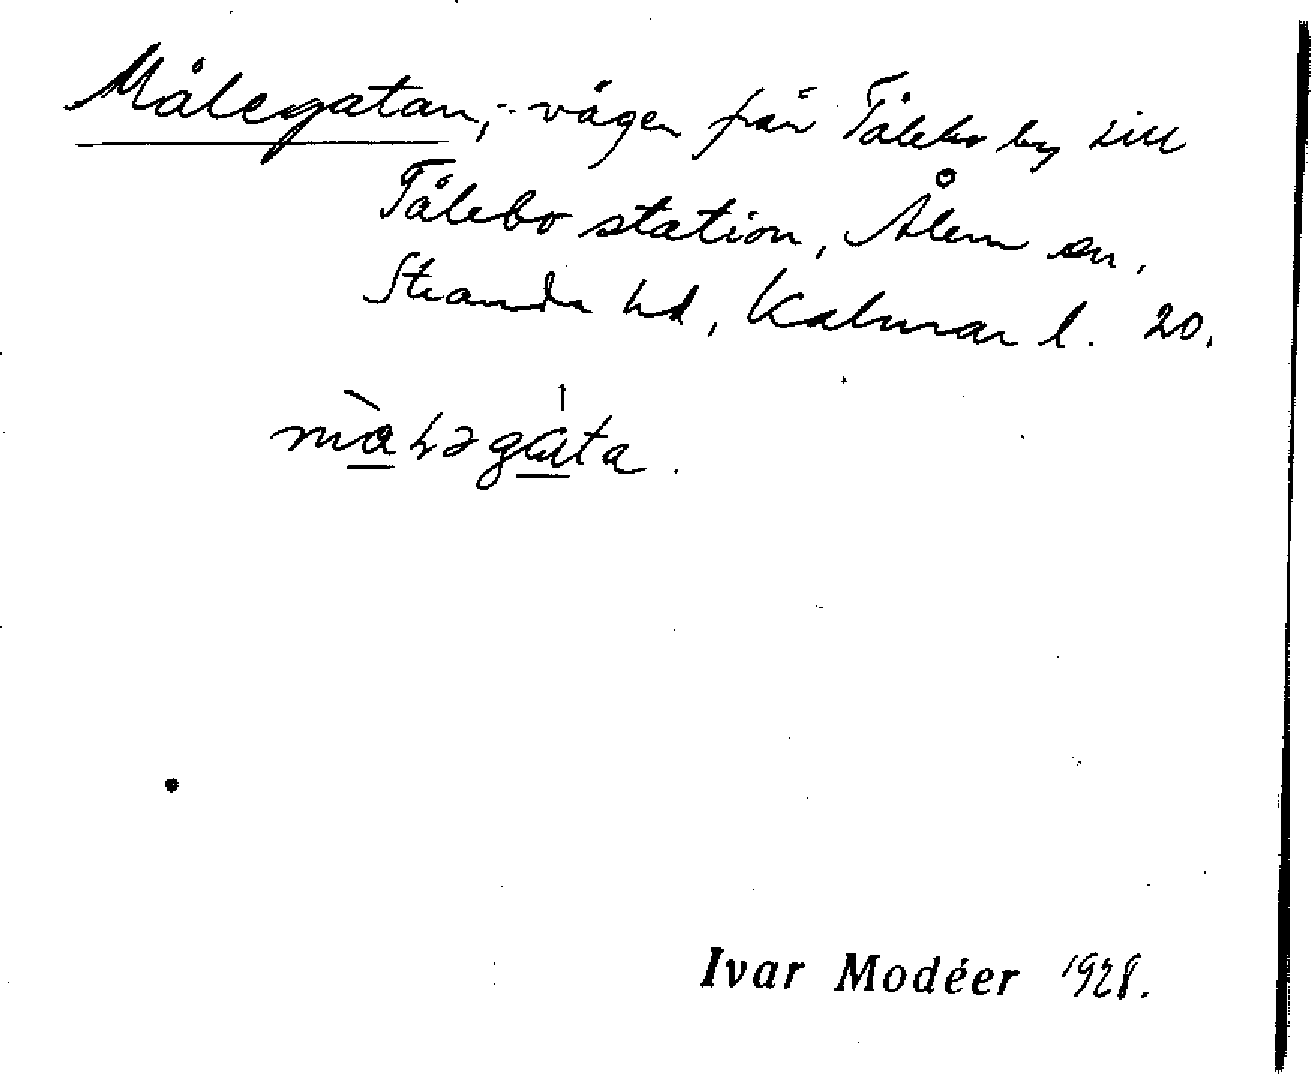 Målegatan, - vägen från Tålebo by till
Tålebo station, Ålem sn,
Stranda hd, Kalmar l. 20.
màLəgáta.
Ivar Modéer 1928.